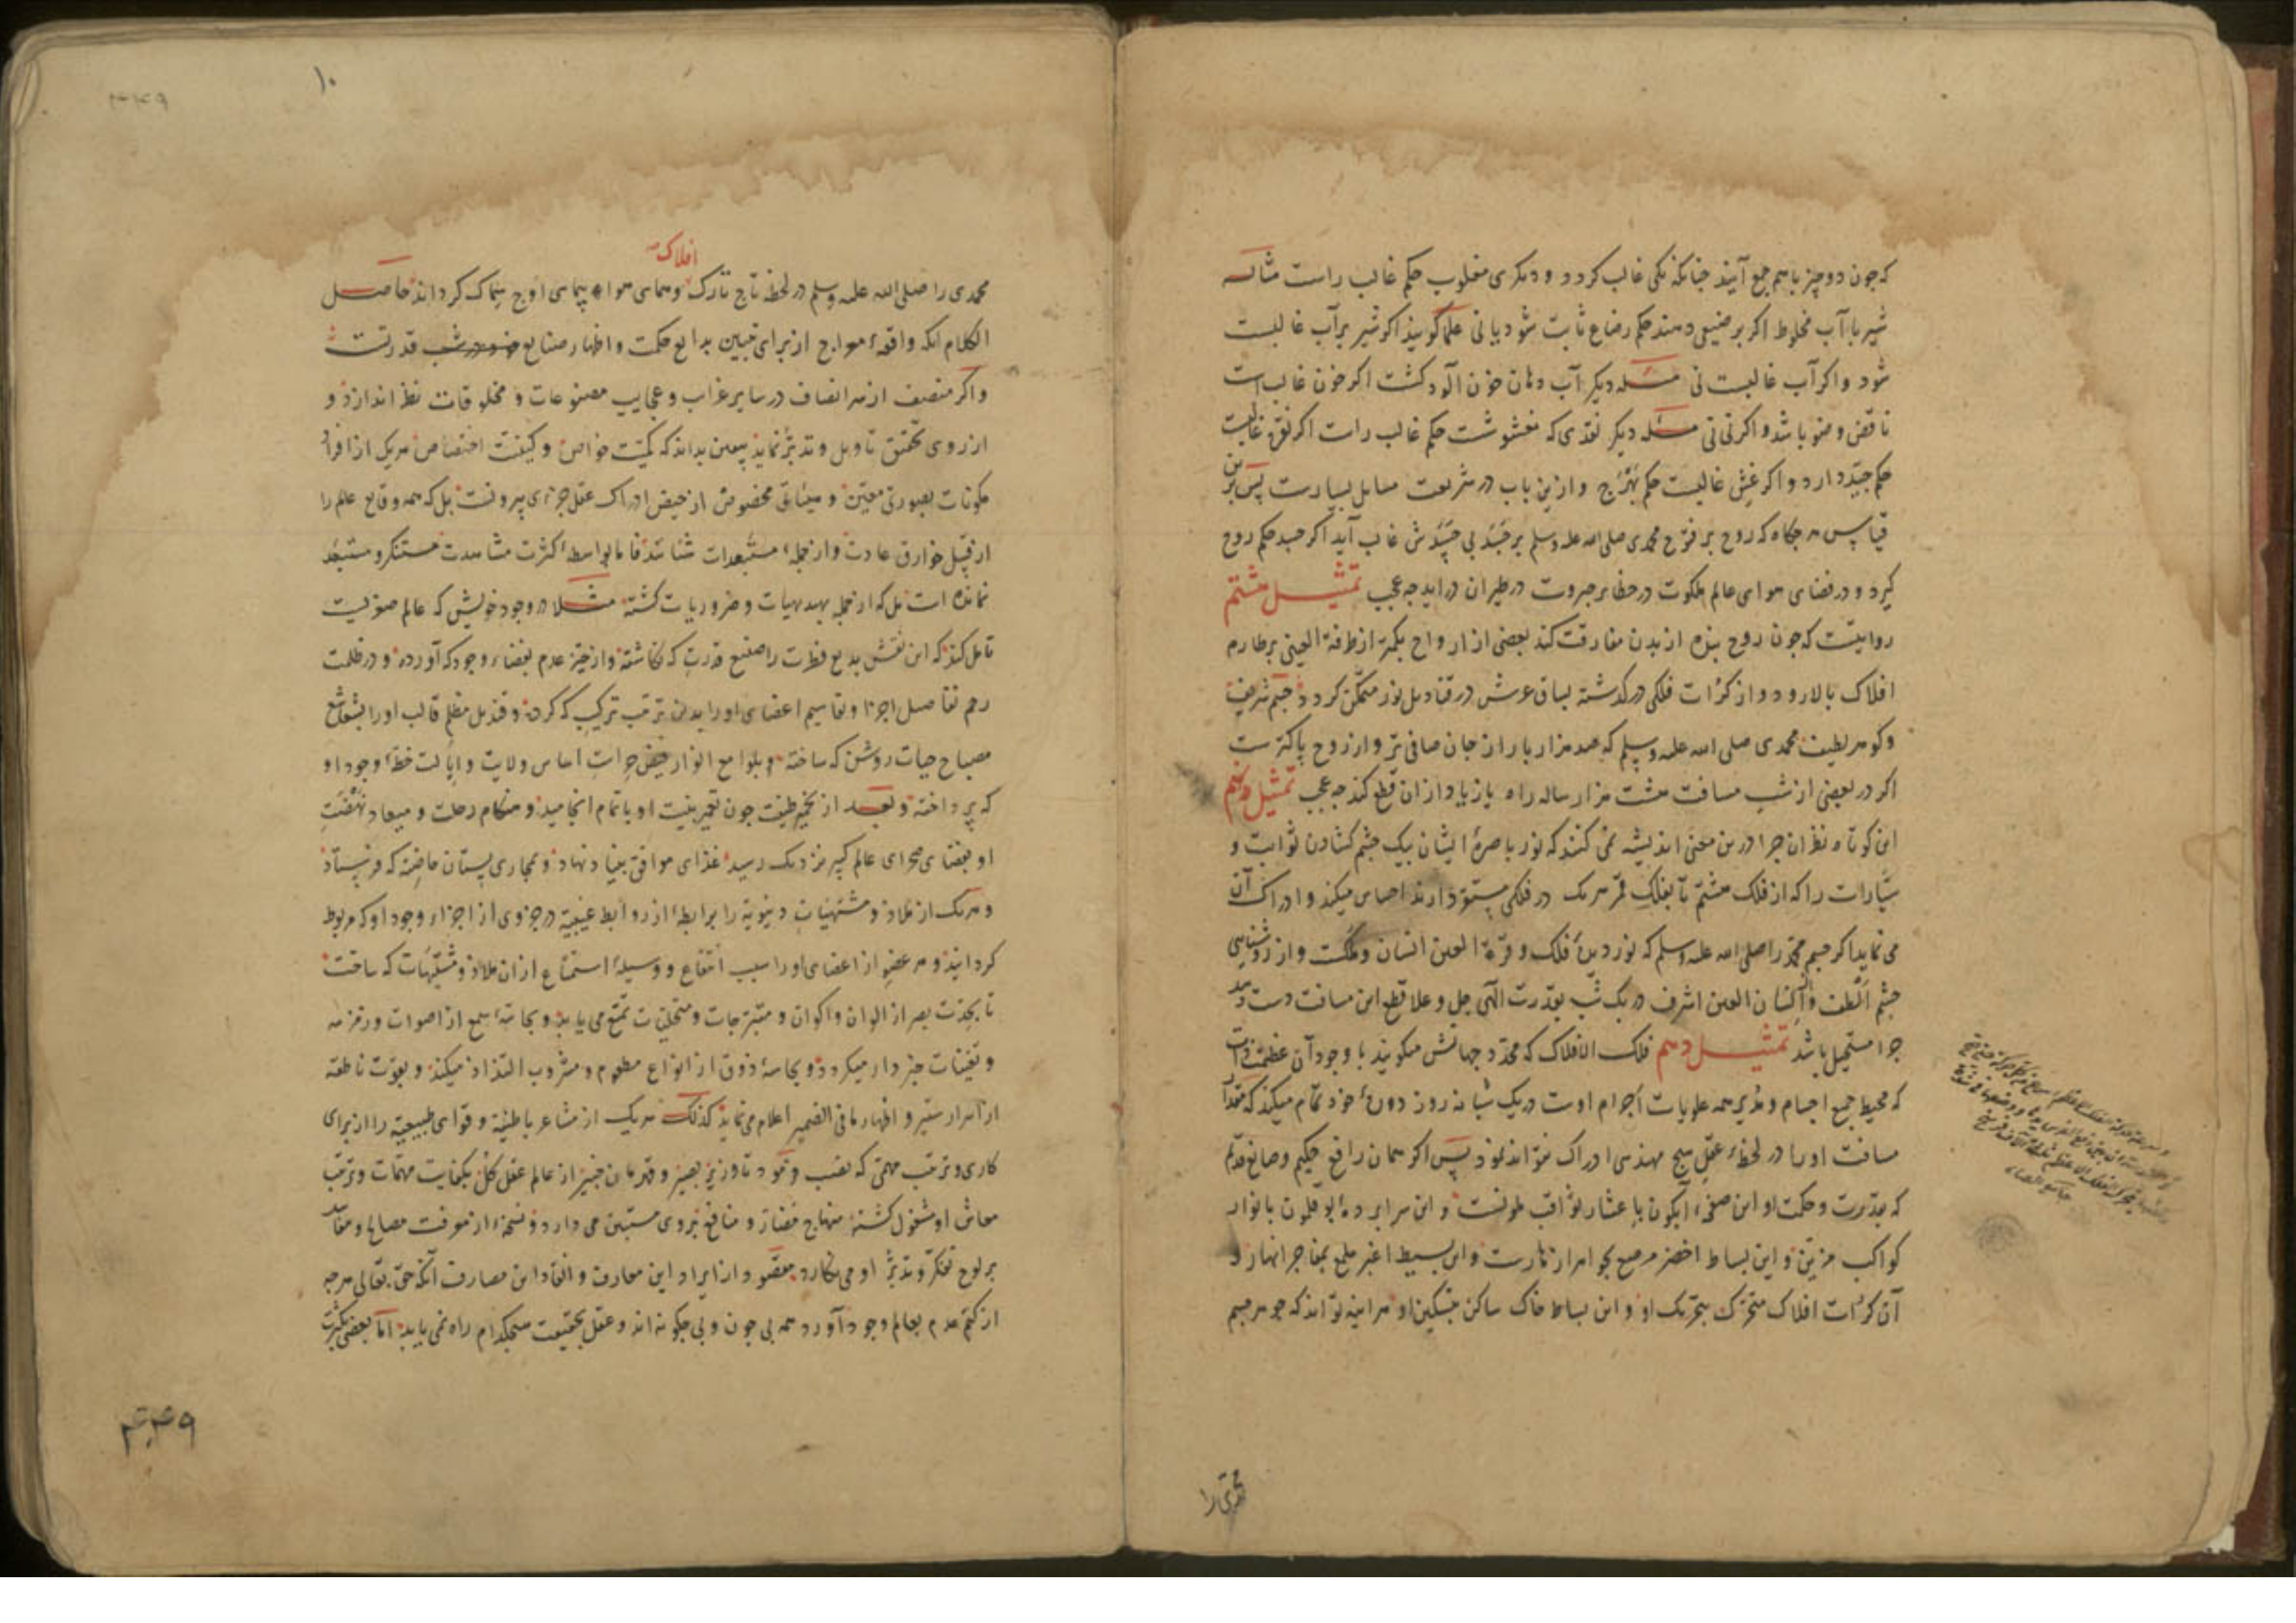 که جون دو چیز باهم جمع آیند جنانکه یکی غالب کردد و دیکری مغلوب حکم غالب راست مثاله
شیر با آب مخلوط اکر بر ضیعی دهند حکم رضاع ثابت شود یا نی علما کویند اکر شیر بر آب غالبست
شود و اکر آب غالبست نی مسئله دیکر آب دهان خون آلود کشت اکر خون غالب است
ناقض وضو باشد و اکر نی نی مسئله دیکر نقدی که مغشوشست حکم غالب راست اکر نقره غالبست
حکم جیّد دارد و اکر غش غالبست حکم بَهْرَج و ازین باب در شریعت مسایل بسیارست پس برین
قیاس هرجکاه که روح پر فتوح محمدی صلی الله علیه وسلم بر جَسَد بی حَسَدش غالب آید اکر جسد حکم روح
کیرد و در فضای هوای عالم ملکوت در حظایر جبروت در طیران دراید جه عجب تمثیل هشتم
روایتست که جون روح بنده از بدن مفارقت کند بعضی از ارواح بکمتر از طرفة العینی بر طارم
افلاک بالا رود و از کرات فلکی درکذشته بساق عرش در قنادیل نور متمکّن کردد و جسم شریف
و کوهر لطیف محمدی صلی الله علیه وسلم که صد هزار بار از جان صافی تر و از روح پاکترست
اکر در بعضی از شب مسافت هشت هزار ساله راه یا زیاده از ان قطع کند جه عجب تمثیل نهم
این کوتاه نظران جرا درین معنی اندیشه نمی کنند که نور باصرهٔ ایشان بیک جشم کشادن ثوابت و
سیّارات را که از فلک هشتم تا بفلک قمر هریک در فلکی مستقر دارند احساس میکند و ادراک آن
می نماید اکر جسم محمد را صلی الله علیه وسلم که نور دیدهٔ فلک و قرّة العین انسان و ملکست و از روشنایی
جشم الطف و انسان العین اشرف در یک شب بقدرت الهی جل و علا قطع این مسافت دست دهد
جرا مستحیل باشد تمثیل دهم فلک الافلاک که محدّد جهاتش میکویند با وجود آن عظمت ذات
که محیط جمیع اجسام و مدیر همه علویات اجرام اوست در یک شبانه روز دورهٔ خود تمام میکند که مقدار
مسافت او را در لحظهٔ عقل هیچ مهندس ادراک نتواند نمود پس اکر همان رافع حکیم و صانع قدیم
که بقدرت و حکمت او این صفحهٔ آبکون با عشار ثواقب ملونست و این سرابردهٔ بوقلمون بانوار
کواکب مزین و این بساط اخضر مرصع بجواهر ازهارست و این بسیط اغبر ملمع بمفاجر انهار و
آن کرات افلاک متحرّک بتحریک او و این بساط خاک ساکن بتسکین او هر اینه تواند که جوهر جسم
محمدی را
۱۰
افلاک
محمدی را صلی الله علیه وسلم در لحظه تاج تارک و همای هوا پیمای اوج سماک کرداند حاصل
الکلام انکه واقعهٔ معراج از برای تبیین بدایع حکمت و اظهار صنایع قدرتست
و اکر منصف از سر انصاف در سایر غرایب و عجایب مصنوعات و مخلوقات نظر اندازد و
از روی تحقیق تاویل و تدبّر نماید بیقین بداند که کمیّت خواص و کیفیّت اختصاص هریک از افراد
مکونات بصورتی معیّن و میثاقی مخصوص از حیض ادراک عقل جزوی بیرونست بل که همه وقایع عالم را
از قبیل خوارق عادت و از جملهٔ مستبعدات شناسد فاما بواسطهٔ کثرت مشاهدت مستنکر و مستبعد
نمانده است بل که از جمله بدیهیات و ضروریات کشته مثلا در وجود خویش که عالم صغریست
تامل کند که این نقش بدیع فطرت را صنیع قدرت که نکاشته و از حیّز عدم بفضاء وجود که آورده و در ظلمت
رحم تفاصیل اجزا و تقاسیم اعضای او را بدین ترتیب ترکیب که کرده و قندیل مظلم قالب او را بشعاشع
مصباح حیات روشن که ساخته و بلوامع انوار اساس ولایت و ایالت خطهٔ وجود او
که پرداخته و بعد از تخمیر طینت جون تعمیر بنیت او باتمام انجامید و هنکام رحلت و میعاد نهضت
او بفضای صحرای عالم کبیر نزدیک رسید غذای موافق بنیاد نهاد و بمجاری پستان حاضنه که فرستاد
و هریک از ملاذ و مشتهیات دنیویه را برابطهٔ از روابط غیبیّه در جزوی از اجزاء وجود او که مربوط
کردانید و هر عضو از اعضای او را سبب انتفاع و وسیلهٔ استمتاع از ان ملاذ و مشتهیات که ساخت
تا بحدّت بصر از الوان و اکوان و متبرّجات و متحلّیات تمتع می یابد و بحاسّهٔ سمع از اصوات و زمزمه
و تغنیات خبردار میکردد و بحاسهٔ ذوق از انواع مطعوم و مشروب التذاذ میکند و بقوت ناطقه
از اسرار ستیر و اظهار ما فی الضمیر اعلام می نماید کذلک هریک از مشاعر باطنیّه و قوای طبیعیّه را از برای
کاری و ترتیب مهمّی که نصب و از عالم عقل کل بکفایت مهمّات و ترتیب
معاش او مشغول کشته منهاج مضار و منافع بروی مستبین می دارد و نسخهٔ از معرفت مصالح و مفاسد
بر لوح تفکّر و تدبّر او می نکارد مقصود از ایراد این معارف و انفاد این مصارف آنکه حق تعالی هرجه
از کتم عدم بعالم وجود آورد همه بی جون و بی جکونه اند و عقل بحقیقت هیجکدام راه نمی یابد اما بعضی بکثرت
۴۴۹